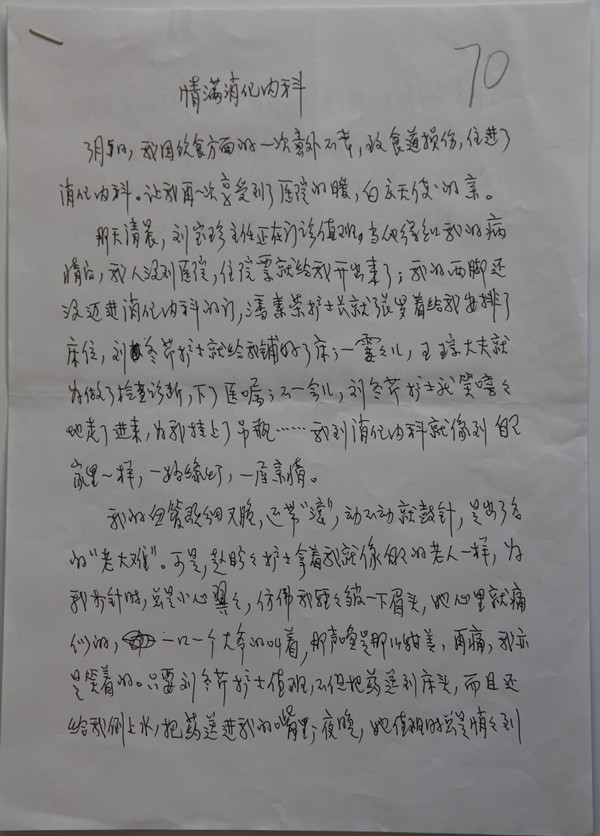 70
情满消化内科
3月5日,我因饮食方面的一次意外不幸,致食道损伤,住进了
消化内科。让我再一次享受到了医院的暖,白衣天使的亲。
那天清晨,刘宝珍主任正在门诊值班。当他得知我的病
情后,我人没到医院,住院票就给我开出来了;我的两脚还
没迈进消化内科的门,潘素荣护士长就张罗着给我安排了
床位,刘冬芹护士就给我铺好了床;一霎之儿,王琼大夫就
为做了检查诊断,下了医嘱;不一会儿,刘冬芹护士就笑嘻々
地走了进来,为我挂上了吊瓶……我到消化内科就像到自己
家里一样,一路绿灯,一座亲情。
我的血管既细又脆,还带"滚",动不动就鼓针,是出了名
的"老大难"。可是,赵盼々护士拿着我就像自己的老人一样,为
我扎针时,总是小心翼々,仿佛我轻々皱一下眉头,她心里就痛
似的,一口一个大爷的叫着,那声音是那么甜美,再痛,我亦
是笑着的。只要刘冬芹护士值班,不但把药送到床头,而且还
给我倒上水,把药送进我的嘴里;夜晚,她值班时总是悄々到